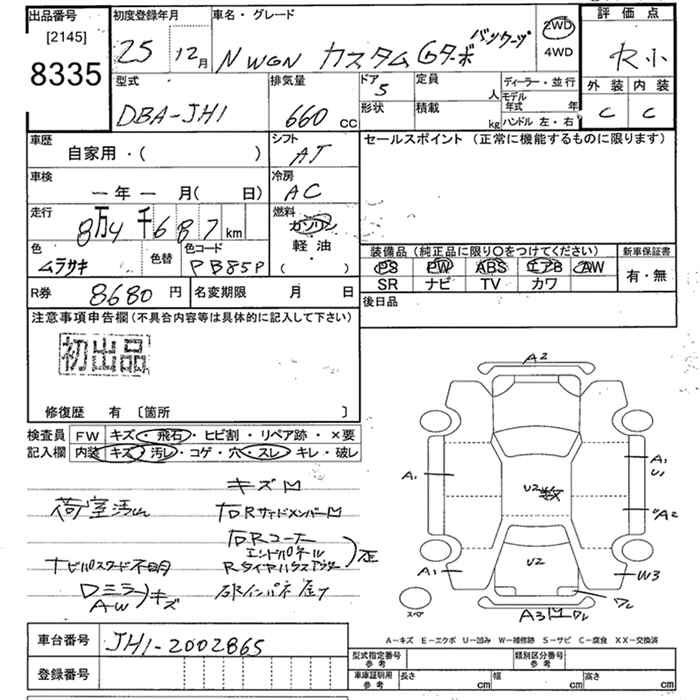 出品番号
[2145]
8335
初度登録年月
25 12月
車名・グレード
N WGN カスタム Gターボ パッケージ
2WD
4WD
評価点
R小
外装 内装
C C
型式
DBA-JH1
排気量
660 CC
ドア
5
形状
定員
人
積載
kg
ディーラー・並行
モデル年式 年
ハンドル 左・右
車歴
自家用・( )
シフト
AT
セールスポイント (正常に機能するものに限ります)
車検
ー年ー月( 日)
冷房
AC
走行
8万4千687km
燃料
ガソリン
軽油
( )
色
ムラサキ
色替
色コード
PB85P
装備品 (純正品に限り○をつけてください)
PS PW ABS エアB AW
SR ナビ TV カワ
新車保証書
有・無
R券 8680円
名変期限 月 日
後日品
注意事項申告欄(不具合内容等は具体的に記入して下さい)
初出品
修復歴 有 〔箇所 〕
検査員記入欄
FW キズ・飛石・ヒビ割・リペア跡・×要
内装 キズ・汚レ・コゲ・穴・スレ・キレ・破レ
キズ凹
荷室汚レ
右Rサイドメンバー凹
右Rコーナー
エンドパネル
Rタイヤハウスアウター
歪
ナビパスワード不明
Dミラー
AW
キズ
A2
A1
A1
U1
U2数
A2
A1
U2
W3
ワレ
A3凹ワレ
スペア
A-キズ E-エクボ U-凹み W-補修跡 S-サビ C-腐食 XX-交換済
車台番号 JH1-2002865
登録番号
型式指定番号 参考
類別区分番号 参考
車庫証明用 参考
長さ cm 幅 cm 高さ cm